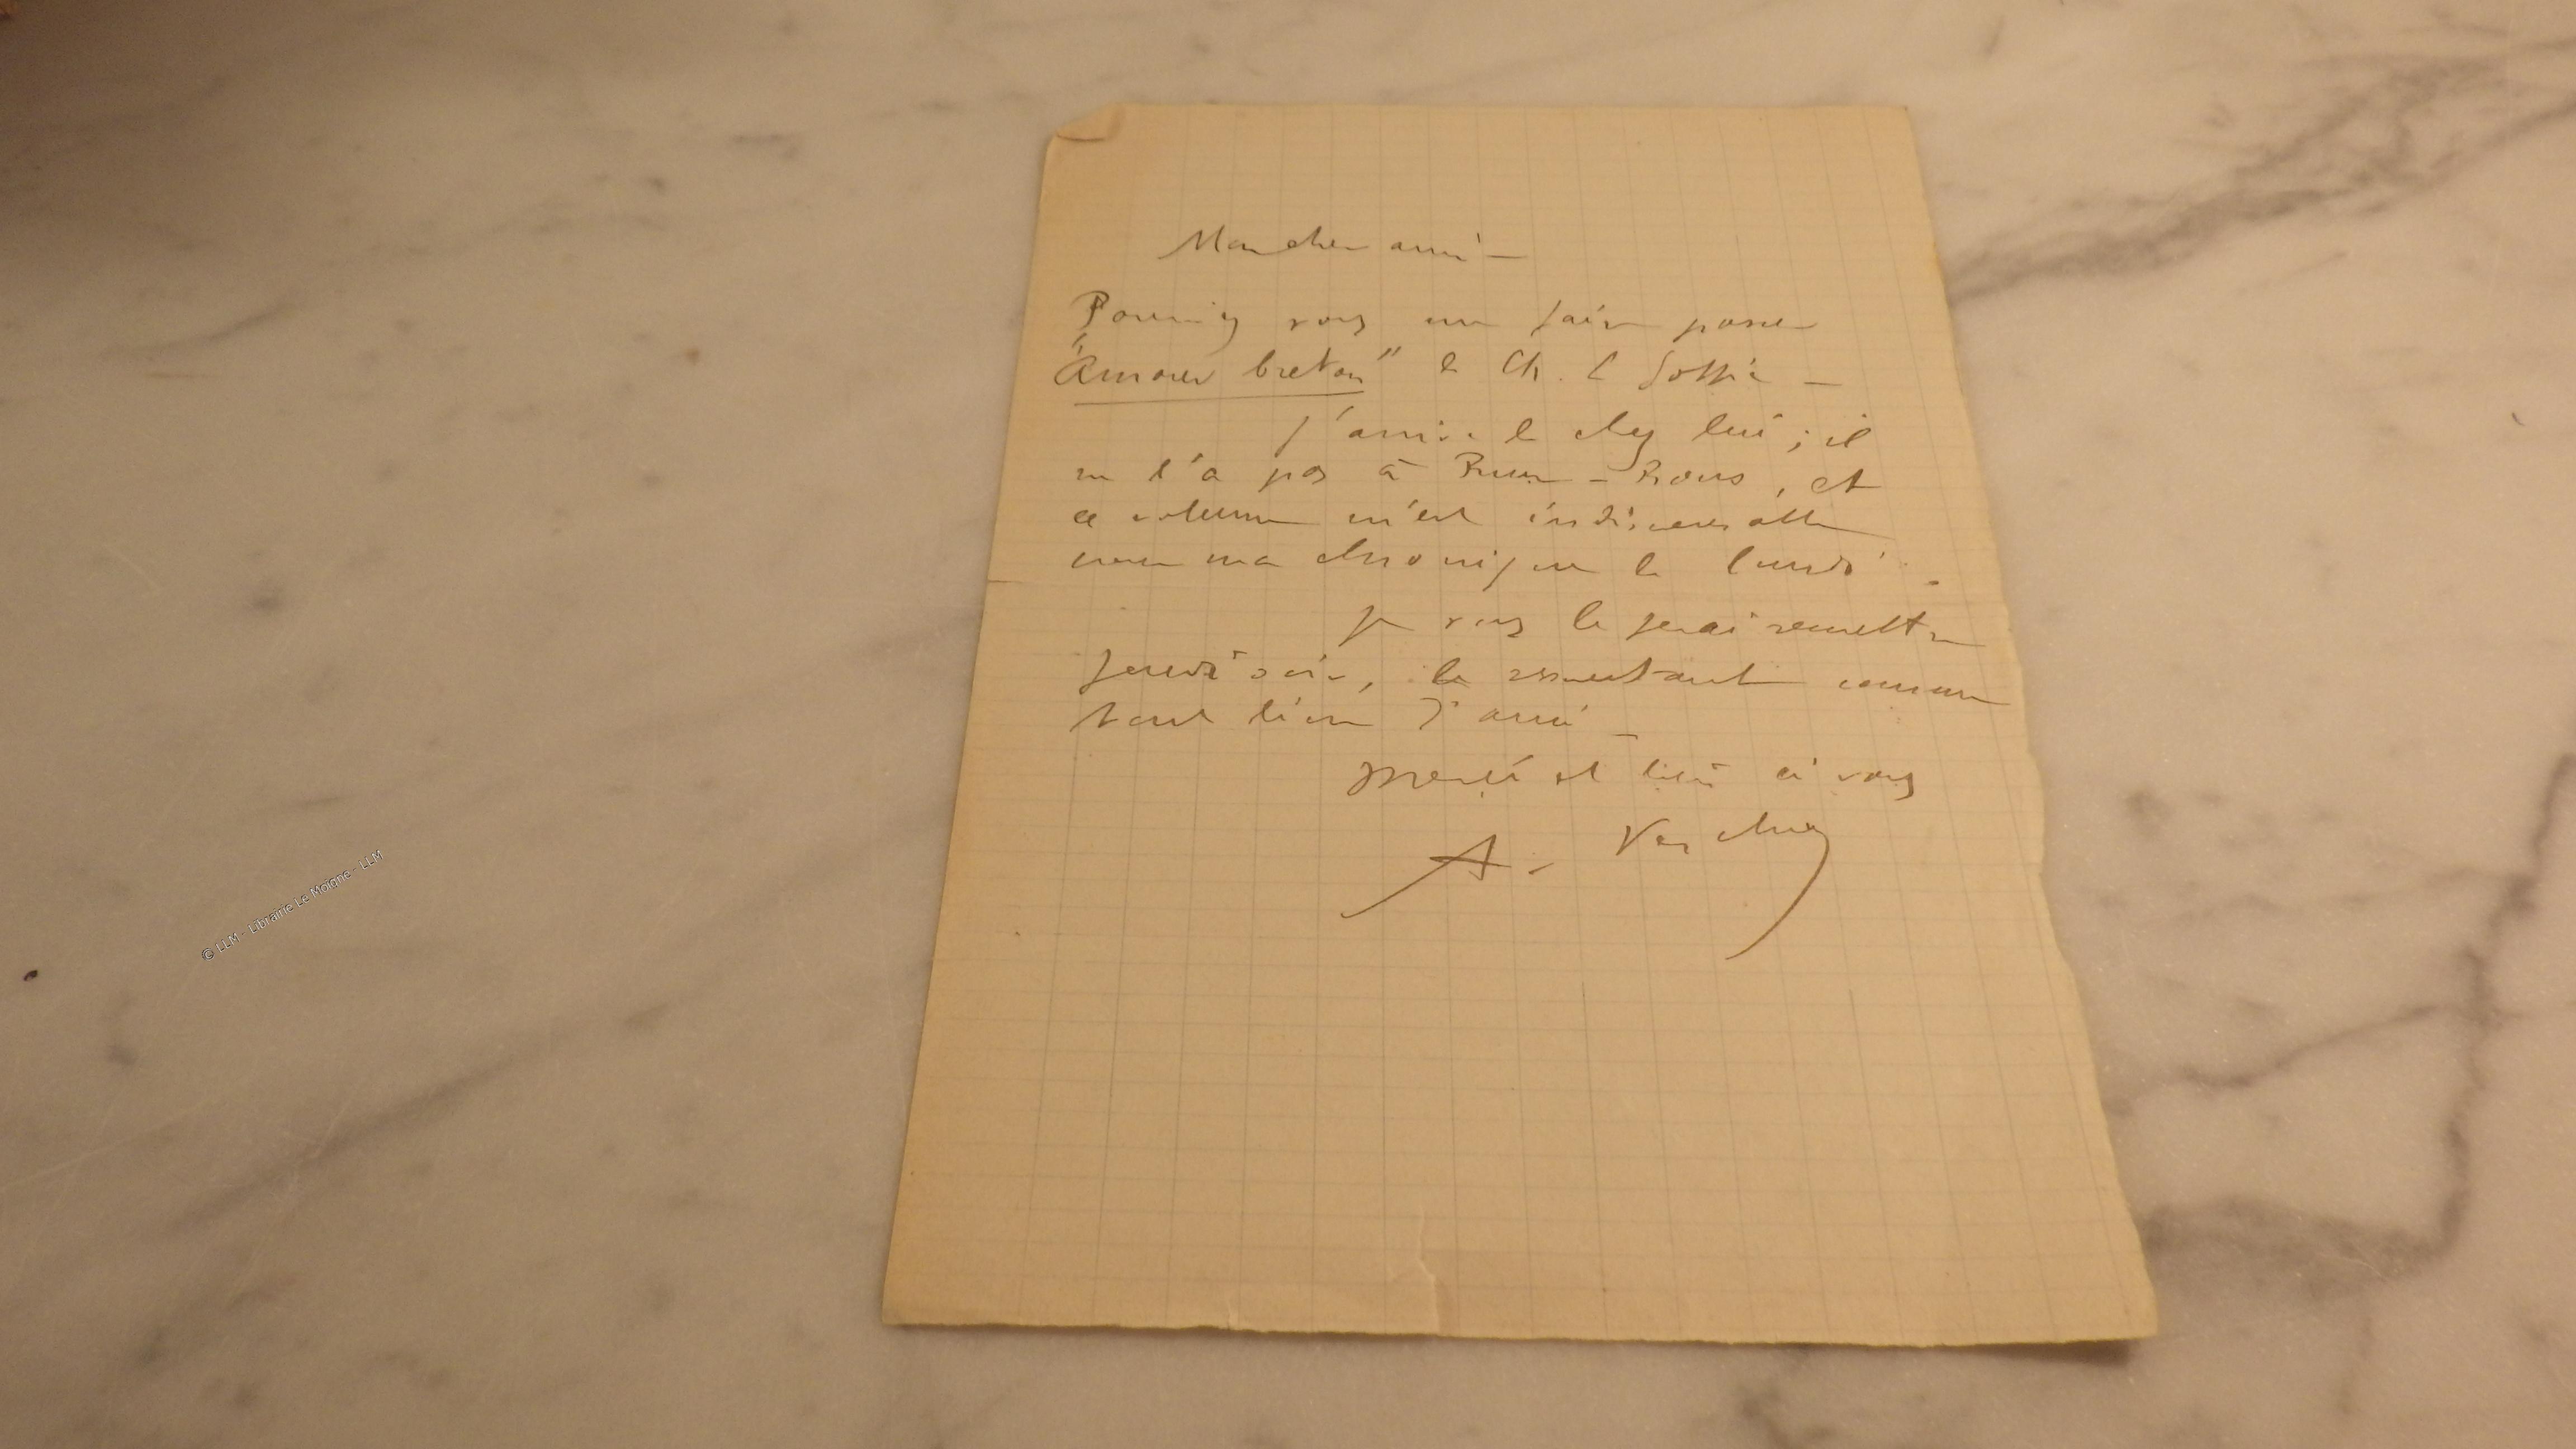 Mon cher ami –
Pourriez vous me faire passer
"Amour breton" de Ch. Le Goffic –
J'arrive de chez lui ; il
ne l'a pas à Run-Rouz, et
ce volume m'est indispensable
pour ma chronique de lundi.
Je vous le ferai remettre
jeudi soir, le respectant comme
tout livre d'ami –
Merci et bien à vous
A.
© LLM - Librairie Le Moigne - LLM